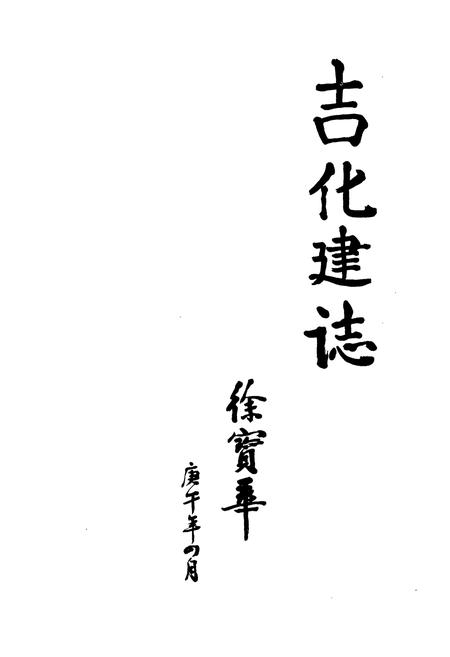 吉化建誌
徐寶華
庚午年四月